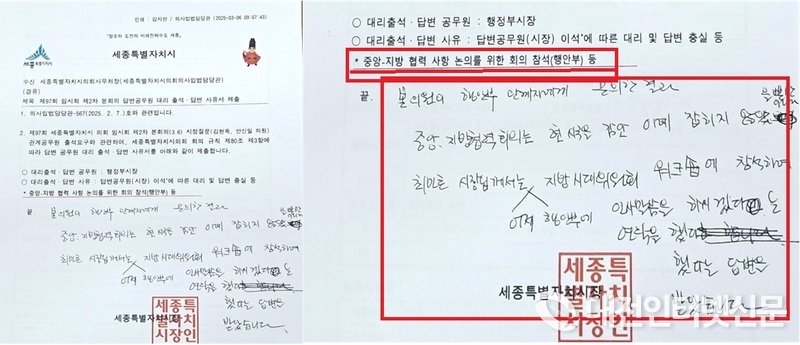 인쇄 : 김지안 / 의사입법담당관 (2025-03-06 09:07:43)
세종특별자치시
수신 세종특별자치시의회사무처장(세종특별자치시의회의사입법담당관)
(경유)
제목 제97회 임시회 제2차 본회의 답변공무원 대리 출석·답변 사유서 제출
1. 의사입법담당관-567(2025. 2. 7.)호와 관련입니다.
2. 제97회 세종특별자치시 의회 임시회 제2차 본회의(3.6) 시정질문(김현옥, 안신일 의원)
관계공무원 출석요구와 관련하여, 세종특별자치시의회 회의 규칙 제80조 제3항에
따라 답변공무원 대리 출석·답변 사유서를 아래와 같이 제출합니다.
○ 대리출석·답변 공무원 : 행정부시장
○ 대리출석·답변 사유 : 답변공무원(시장) 이석*에 따른 대리 및 답변 충실 등
* 중앙-지방 협력 사항 논의를 위한 회의 참석(행안부) 등
끝. 본의원이 행안부 관계자에게 문의한 결과
중앙·지방협력회의는 현 시국을 감안 아예 잡히지 않았
을뿐만
최민호 시장님께서는 지방시대위원회 워크숍에 참석하며
어제 행안부에 인사말씀을 하시겠다는
연락을 했다
했다는 답변을
받았습니다.
세종특별자치시장
세종특
별자치
시장인
○ 대리출석·답변 공무원 : 행정부시장
○ 대리출석·답변 사유 : 답변공무원(시장) 이석*에 따른 대리 및 답변 충실 등
* 중앙-지방 협력 사항 논의를 위한 회의 참석(행안부) 등
끝. 본의원이 행안부 관계자에게 문의한 결과
을뿐만
중앙·지방협력회의는 현 시국을 감안 아예 잡히지 않았
최민호 시장님께서는 지방시대위원회 워크숍에 참석하며
어제 행안부에 인사말씀을 하시겠다는
연락을 했다
했다는 답변을
받았습니다.
세종특별자치시장
세종특
별자치
시장인
대전인터넷신문